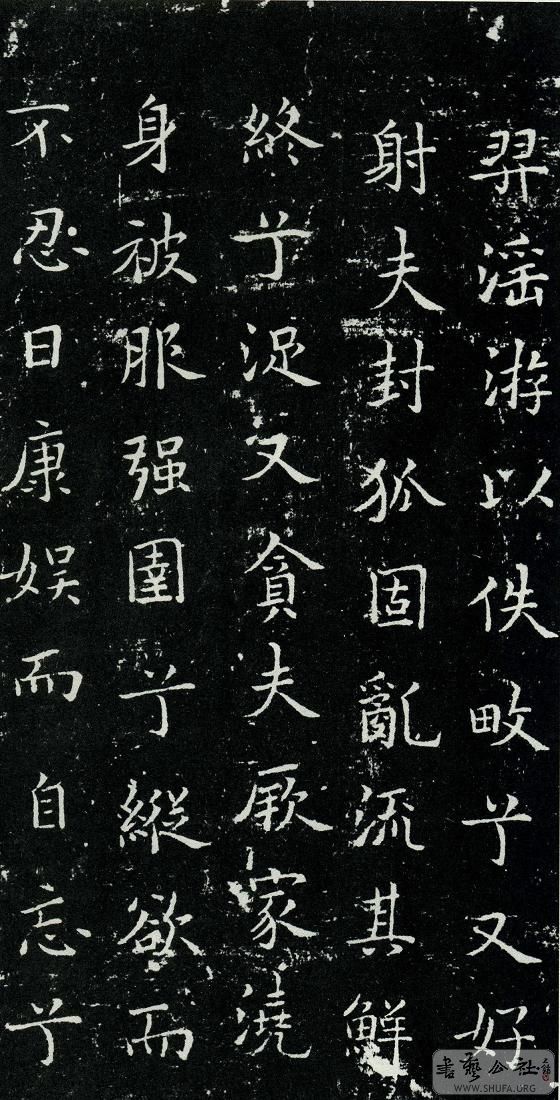 羿淫游以佚畋兮又好
射夫封狐固亂流其鮮
終兮浞又貪夫厥家澆
身被服强圉兮縱欲而
不忍日康娱而自忘兮
書藝公社
WWW.SHUFA.ORG